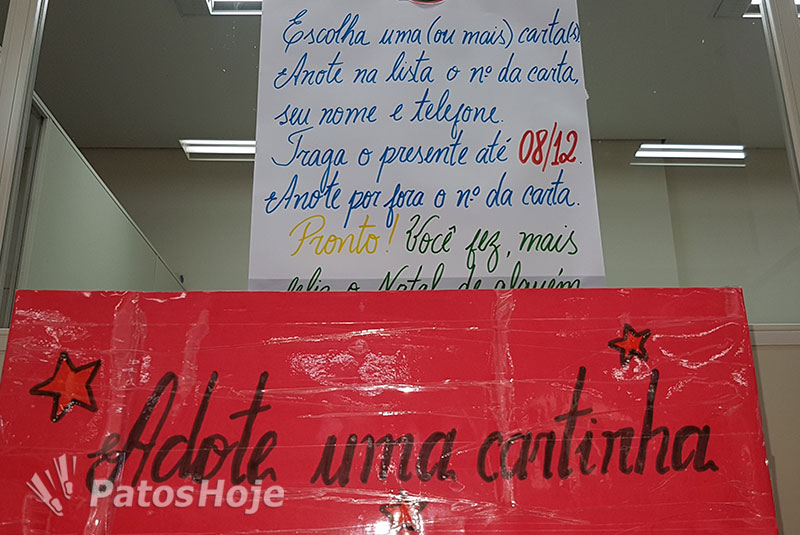 Escolha uma (ou mais) carta(s).
Anote na lista o nº da carta,
seu nome e telefone.
Traga o presente até 08/12.
Anote por fora o nº da carta.
Pronto! Você fez, mais
feliz o Natal de alguém
Adote uma cartinha
PatosHoje